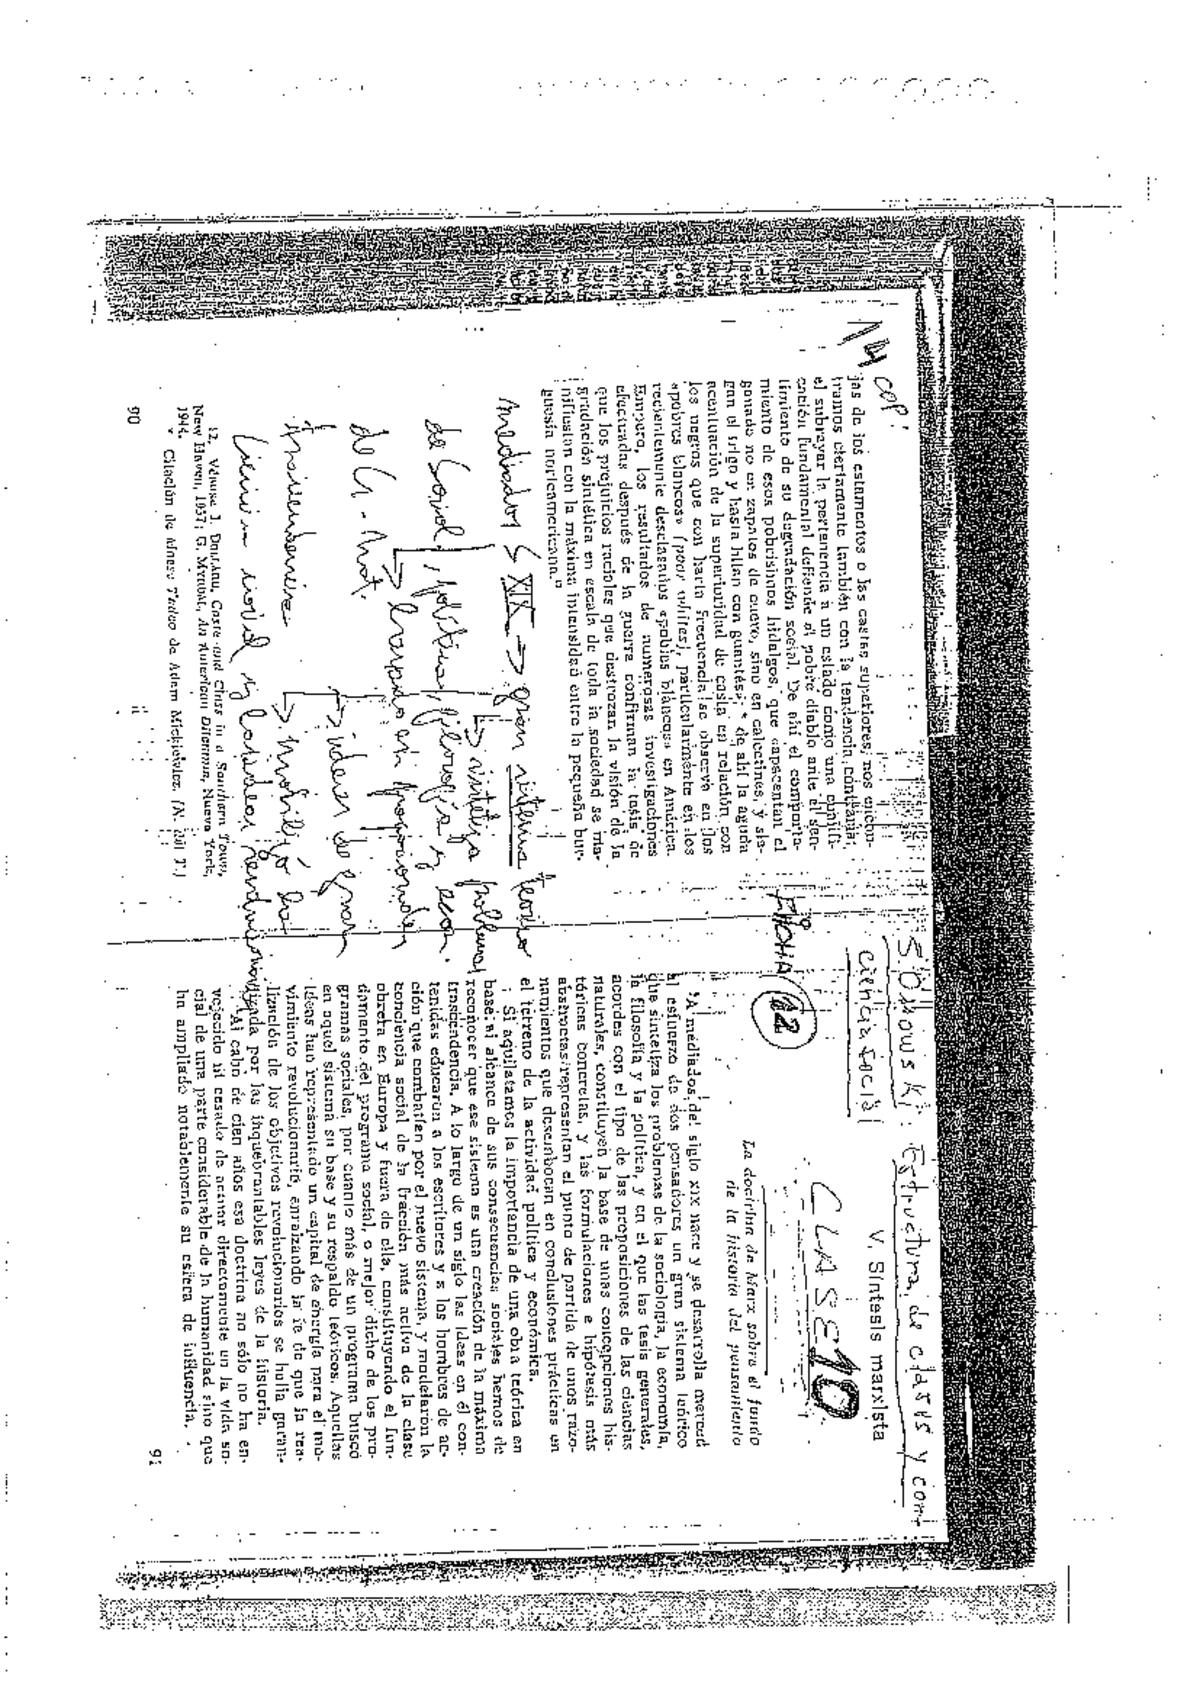 14 COP.
jas de los estamentos o las castas superiores, nos encon-
tramos ciertamente también con la tendencia contraria:
el subrayar la pertenencia a un estado como una cualifi-
cación fundamental defiende al pobre diablo ante el sen-
timiento de su degradación social. De ahí el comporta-
miento de esos pobrísimos hidalgos, que «apacentan el
ganado no en zapatos de cuero, sino en calcetines, y sie-
gan el trigo y hasta hilan con guantes»; * de ahí la aguda
acentuación de la superioridad de casta en relación con
los negros que con harta frecuencia se observa en los
«pobres blancos» (poor whites), particularmente en los
recientemente desclasados «pobres blancos» en América.
Empero, los resultados de numerosas investigaciones
efectuadas después de la guerra confirman la tesis de
que los prejuicios raciales que destrozan la visión de la
gradación sintética en escala de toda la sociedad se ma-
nifiestan con la máxima intensidad entre la pequeña bur-
guesía norteamericana.
mediados S XIX → gran sistema teórico
de Sociol, política, filosofía y econ.
→ sintetiza problemas
de C. Nat.
→ basado en proposiciones
→ ideas de gran
trascendencia
→ movilizó
Ciencia social y
12. Véanse J. Dollard, Caste and Class in a Southern Town,
New Haven, 1937; G. Myrdal, An American Dilemma, Nueva York,
1944.
* Citación de Adam Mickiewicz. (N. del T.)
90
SOKOWSKI: Estructura de clases y con-
ciencia social
V. Síntesis marxista
CLASE 10
FICHA 12
La doctrina de Marx sobre el fondo
de la historia del pensamiento
A mediados del siglo XIX nace y se desarrolla merced
al esfuerzo de dos pensadores un gran sistema teórico
que sintetiza los problemas de la sociología, la economía,
la filosofía y la política, y en el que las tesis generales,
acordes con el tipo de las proposiciones de las ciencias
naturales, constituyen la base de unas concepciones his-
tóricas concretas, y las formulaciones e hipótesis más
abstractas representan el punto de partida de unos razo-
namientos que desembocan en conclusiones prácticas en
el terreno de la actividad política y económica.
Si aquilatamos la importancia de una obra teórica en
base al alcance de sus consecuencias sociales hemos de
reconocer que ese sistema es una creación de la máxima
trascendencia. A lo largo de un siglo las ideas en él con-
tenidas educaron a los escritores y a los hombres de ac-
ción que combatían por el nuevo sistema, y modelaron la
conciencia social de la fracción más activa de la clase
obrera en Europa y fuera de ella, constituyendo el fun-
damento del programa social, o mejor dicho de los pro-
gramas sociales, por cuanto más de un programa buscó
en aquel sistema su base y su respaldo teóricos. Aquellas
ideas han representado un capital de energía para el mo-
vimiento revolucionario, enraizando la fe de que la rea-
lización de los objetivos revolucionarios se halla garan-
tizada por las inquebrantables leyes de la historia.
Al cabo de cien años esa doctrina no sólo no ha en-
vejecido ni cesado de actuar directamente en la vida so-
cial de una parte considerable de la humanidad sino que
ha ampliado notablemente su esfera de influencia.
91